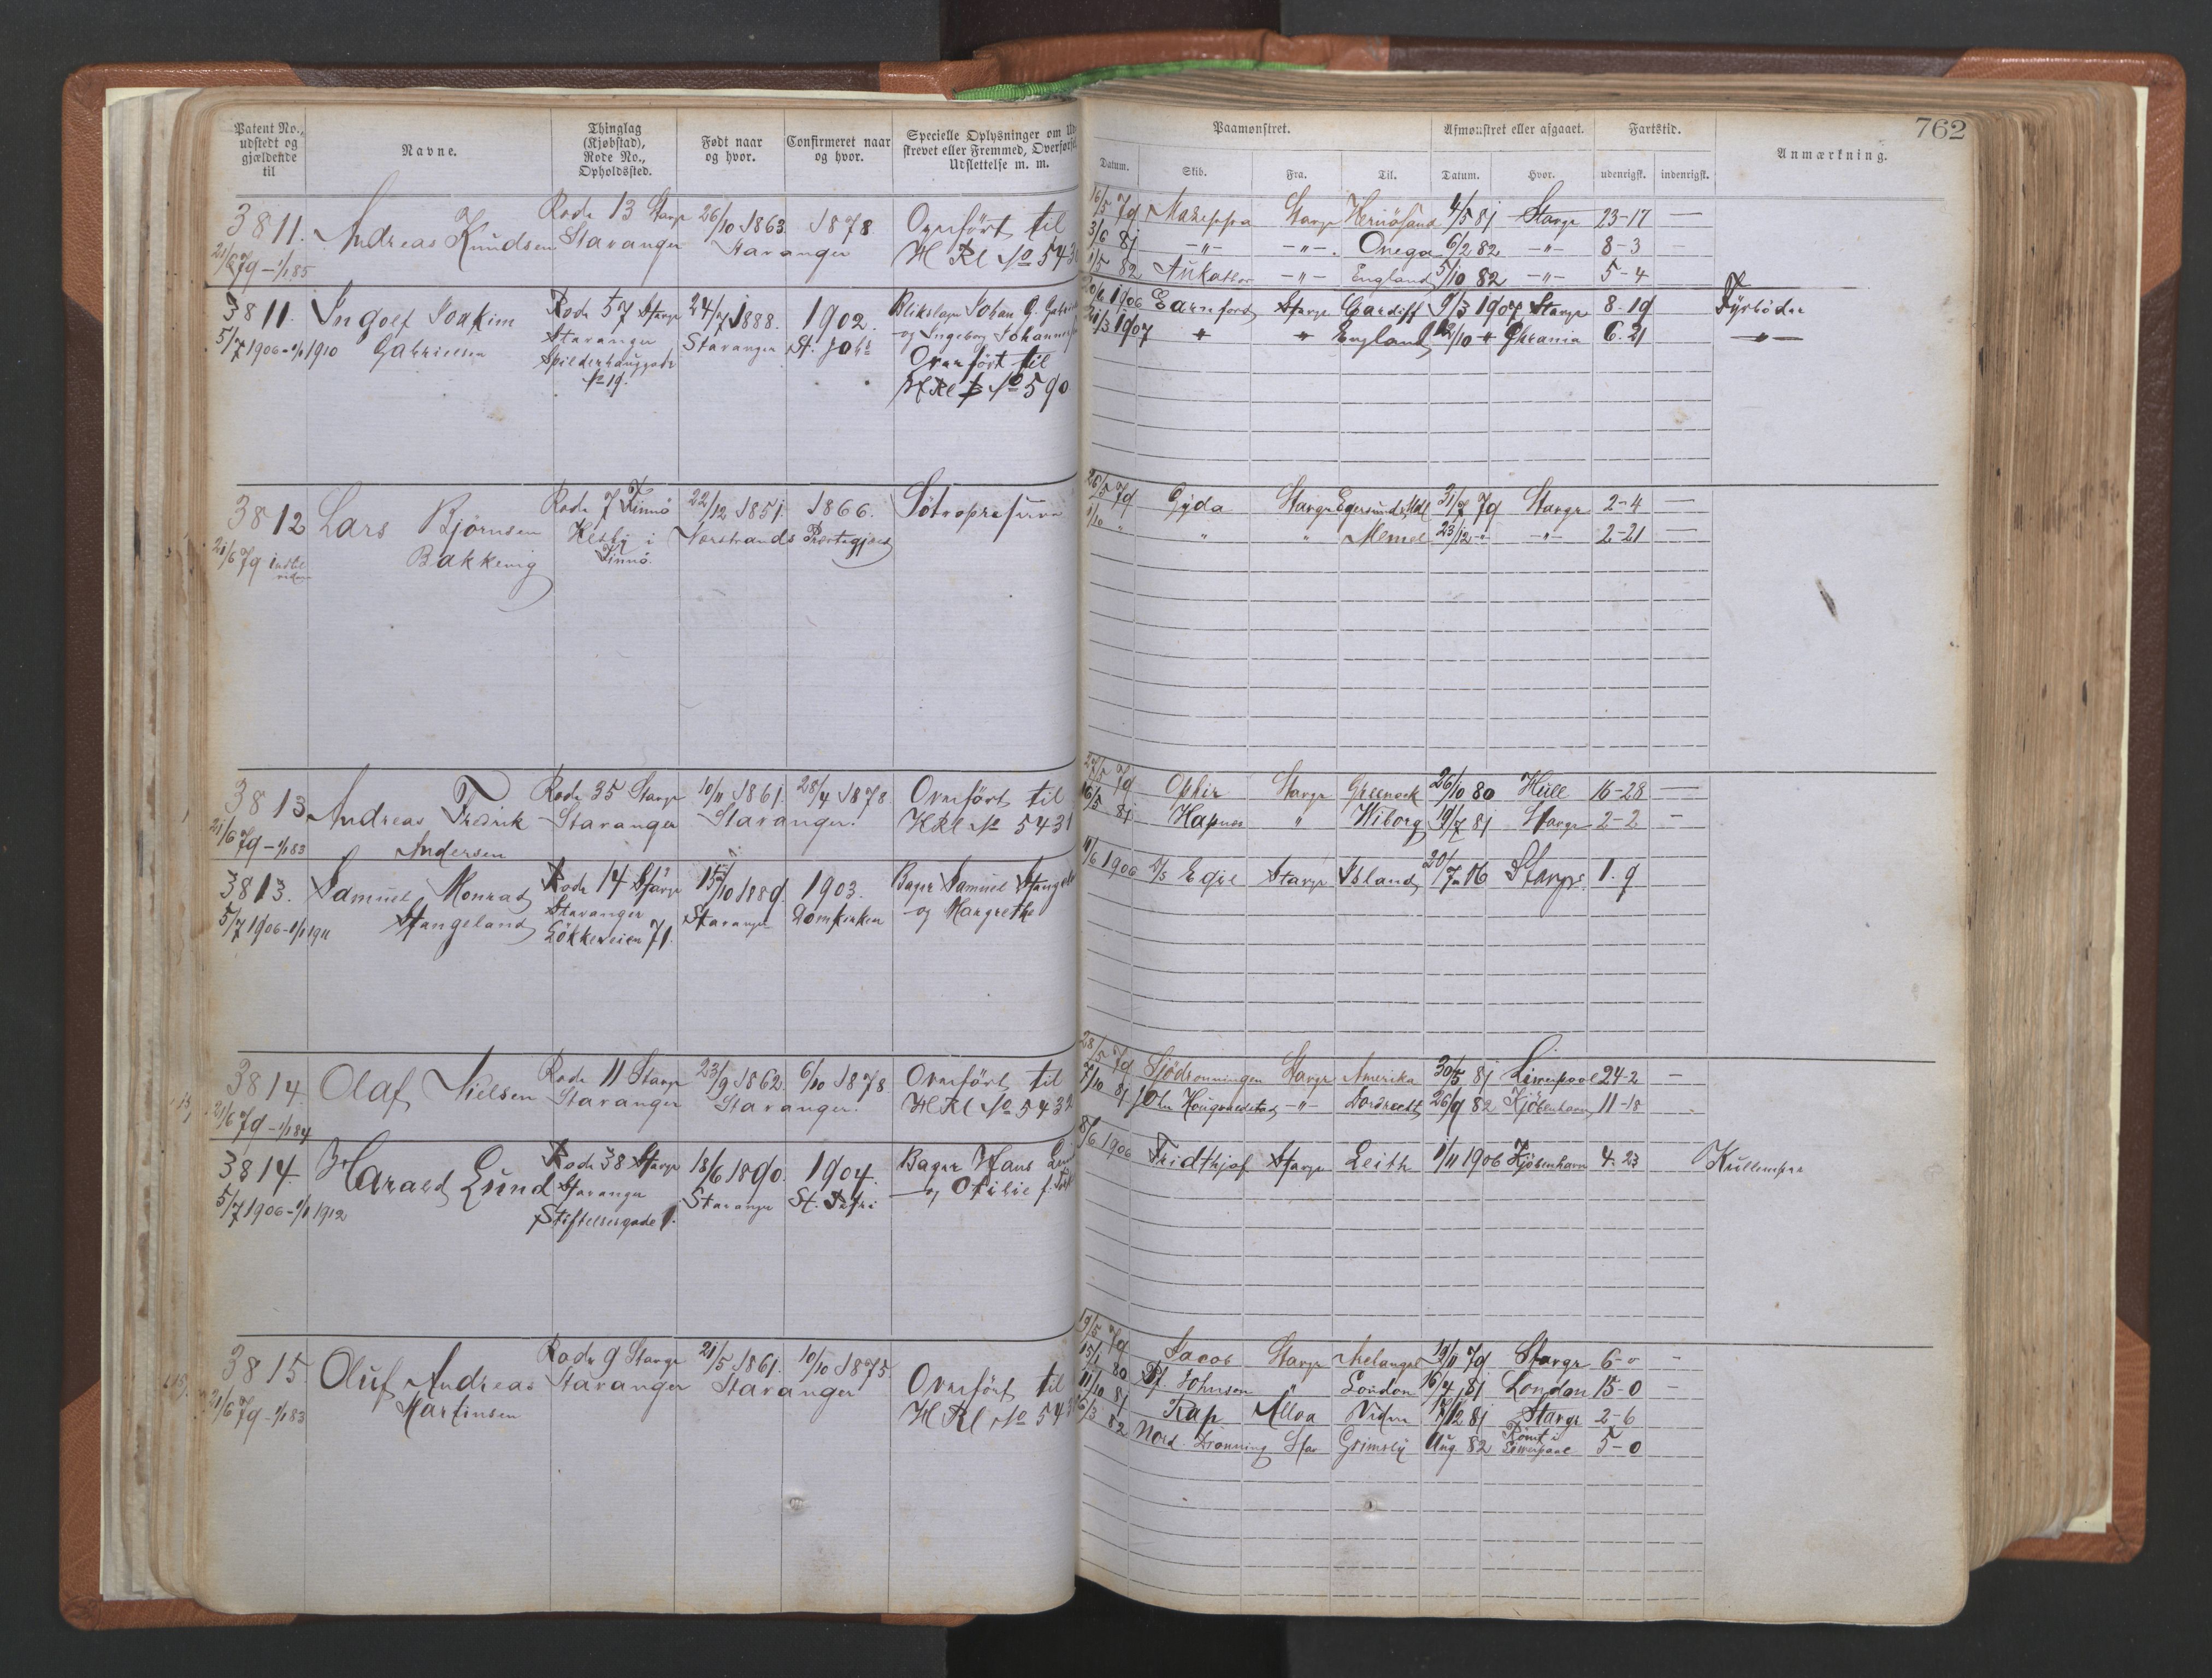 762
Patent No., udstedt og gjældende til
Navne.
Thinglag (Kjøbstad), Rode No., Opholdssted.
Født naar og hvor.
Confirmeret naar og hvor.
Specielle Oplysninger om Ud-
skrevet eller Fremmed, Overførsel
Udslettelse m. m.
Paamønstret.
Afmønstret eller afgaaet.
Fartstid.
Anmærkning.
Datum. Skib. Fra. Til. Datum. Hvor. udenrigsk. indenrigsk.
3811. Andreas Knudsen Rode 13 Stavgr 26/10 1863. 1878. Overført til
21/6 79 - 1/1 85 Stavanger Stavanger H Rl No 543
16/5 79 Stavgr Hernøsand 4/5 81 Stavgr 23-17 —
3/6 81 -"- -"- Onega 6/2 82 -"- 8-3 —
1/5 82 -"- England 5/10 82 -"- 5-4
3811. Ingolf Joakim Rode 57 Stavgr 24/7 1888. 1902. Johan G.
5/7 1906 - 1/1 1910 Gabrielsen Stavanger Stavanger St. Johs og Ingeborg
Spilderhauggade Overført til
No 19. H Rl No 590
1906 Earnford Stavgr Cardiff 9/3 1907 Stavgr 8. 19 Fyrbøder
21/3 1907 " " England 12/10 " Chrania 6. 21 — " —
3812 Lars Bjørnsen Rode 7 Finnø 22/12 1851. 1866.
21/6 79 Bakkevig i Nerstrands Præstegjeld
Finnø.
26/5 79 Gyda Stavgr 31/7 79 Stavgr 2-4 —
1/10 " " " Memel 23/12 -"- -"- 2-21 —
3813 Andreas Fredrik Rode 35 Stavgr 10/11 1861. 28/4 1878. Overført til
21/6 79 - 1/1 83 Andersen Stavanger Stavanger. H Rl No 5431
27/5 79 Ophir Stavgr Greenock 26/10 80 Hull 16-28 —
16/5 81 " Wiborg 19/7 81 Stavgr 2-2 —
3813. Samuel Monrad Rode 14 Stavgr 15/10 1889. 1903. Bager Samuel Stangeland
5/7 1906 - 1/1 1911 Stangeland Stavanger Stavanger Domkirken og Margrethe
Løkkeveien 71.
11/6 1906 Egil Stavgr Island 20/7 06 Stavgr. 1. 9
3814. Olaf Nielsen Rode 11 Stavgr 23/9 1862. 6/10 1878. Overført til
21/6 79 - 1/1 84 Stavanger Stavanger. H Rl No 5432
28/5 79 Sjødronningen Stavgr Amerika 30/5 81 Liverpool 24-2 —
7/10 81 John -"- Dordrecht 26/9 82 Kjøbenhavn 11-18
3814. Harald Lund Rode 38 Stavgr 18/6 1890. 1904. Bager Hans Lund
5/7 1906 - 1/1 1912 Stavanger Stavanger St. Petri og
Stiftelsesgade 1.
8/6 1906 Fridthjof Stavgr Leith 1/11 1906 Kjøbenhavn 4. 23 Kullemper
3815. Oluf Andreas Rode 9 Stavgr 21/5 1861. 10/10 1875. Overført til
21/6 79 - 1/1 83 Martinsen Stavanger Stavanger H Rl No 543
19/5 79 Jacob Stavgr Archangel 19/11 79 Stavgr 6-0 —
15/1 80 Johnsen " London 16/4 81 London 15-0 —
11/10 81 Alloa 17/12 81 Stavgr 2-6
82 Nord. Dronning Stav Grimsby Aug 82 Rømt i Liverpool 5-0